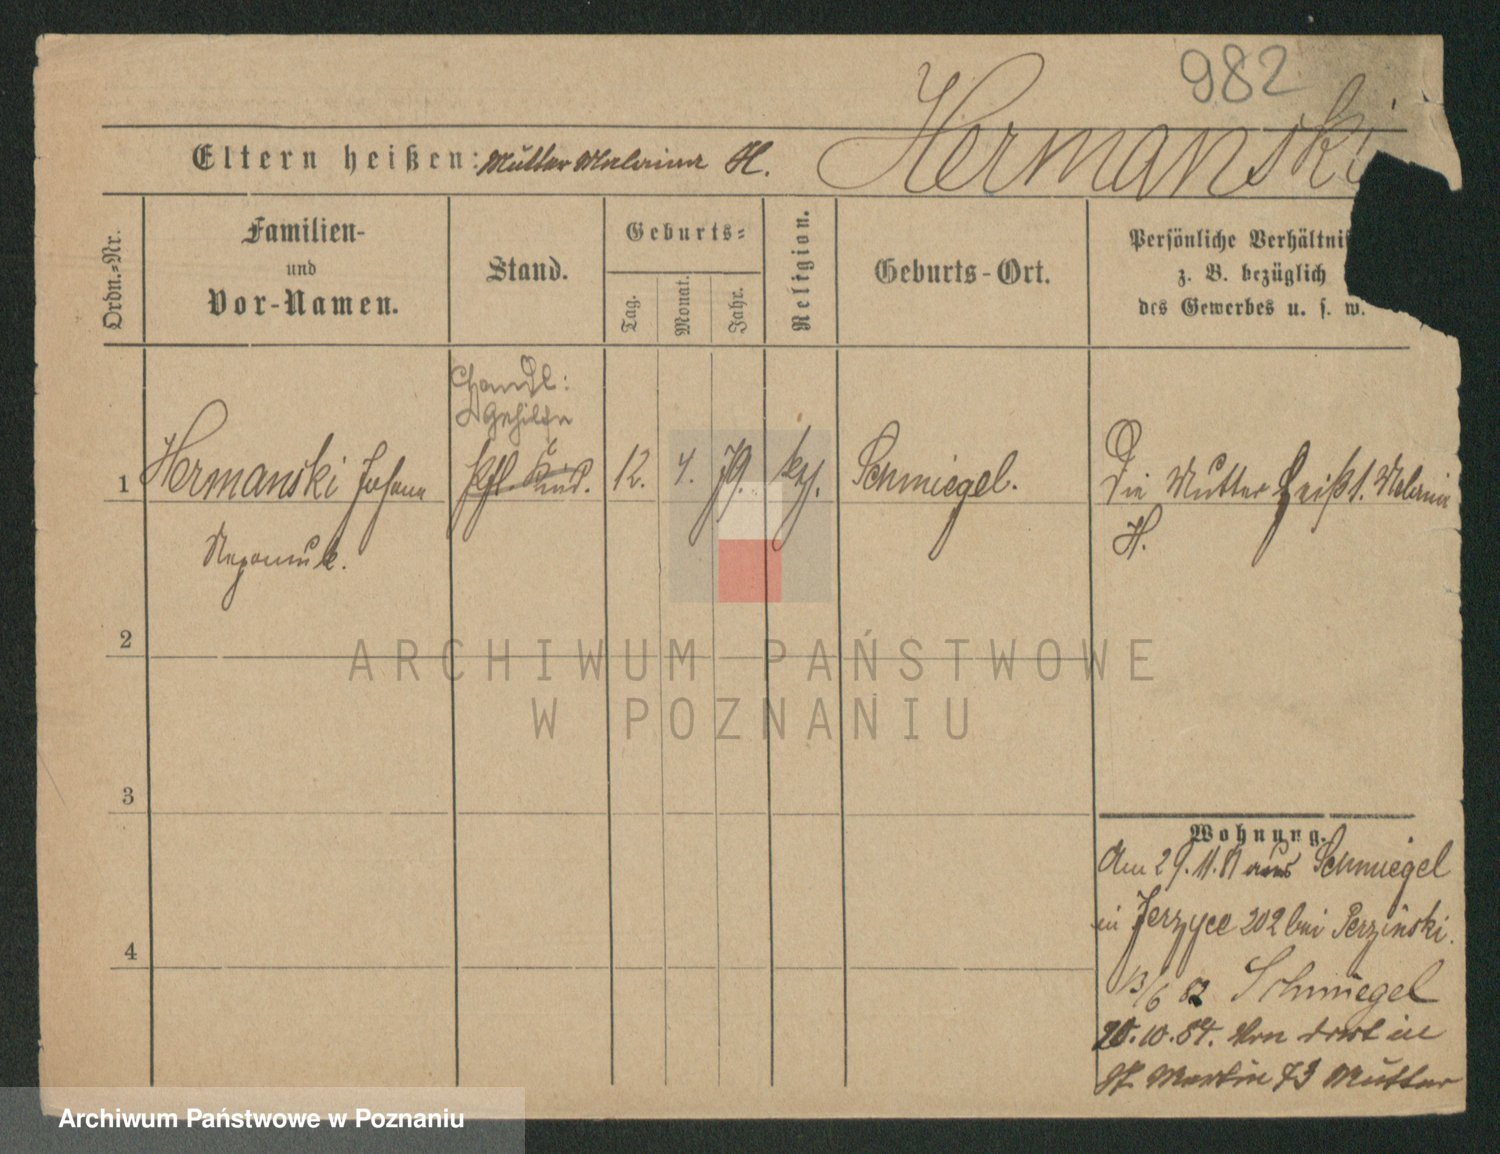 982
Hermanski
Eltern heißen: Mutter Melanie H.
Ordn.-Nr.
Familien-
und
Vor-Namen.
Stand.
Geburts-
Tag.
Monat.
Jahr.
Religion.
Geburts-Ort.
Persönliche Verhältni
z. B. bezüglich
des Gewerbes u. s. w.
Handl:
Gehilfe
1 Hermanski Johann
Kind. 12. 4. 79. Schmiegel.
Die Mutter heißt
H.
Nepomuk.
2
ARCHIWUM PAŃSTWOWE
W POZNANIU
3
4
Wohnung.
Am 29.11.81 aus Schmiegel
in Jerzyce 202 bei Perzinski.
13/6 82 Schmiegel
20.10.84. Von dort in
St. Martin 73 Mutter
Archiwum Państwowe w Poznaniu